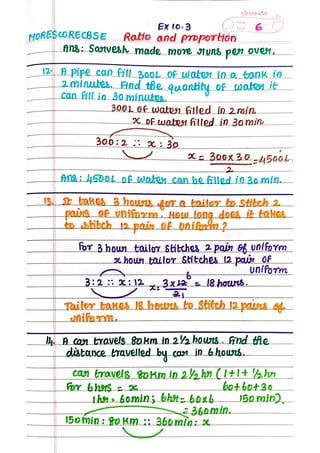 classmate
Date
Page 6
EX 10.3
MORESCORECBSE Ratio and proportion
Ans: Sarvesh made more runs per over.
12. A pipe can fill 300L of water in a tank in
2 minutes. Find the quantity of water it
can fill in 30 minutes.
300L of water filled in 2 min
x of water filled in 30 min
300 : 2 :: x : 30
x = 300 x 30 / 2 = 4500L
Ans: 4500L of water can be filled in 30 min.
13. It takes 3 hours for a tailor to stitch 2
pairs of uniform. How long does it takes
to stitch 12 pair of uniform?
For 3 hour tailor stitches 2 pair of uniform
x hour tailor stitches 12 pair of
uniform
3:2 :: x:12 x = 3 x 12 6 / 2 1 = 18 hours.
Tailor takes 18 hours to stitch 12 pairs of
uniform.
14. A car travels 80 Km in 2 1/2 hours. Find the
distance travelled by car in 6 hours.
car travels 80 Km in 2 1/2 hr (1+1+ 1/2 hr
For 6 hrs = x 60+60+30
1 hr = 60 min; 6 hr = 60x6 150 min).
= 360 min.
150 min : 80 Km :: 360 min : x